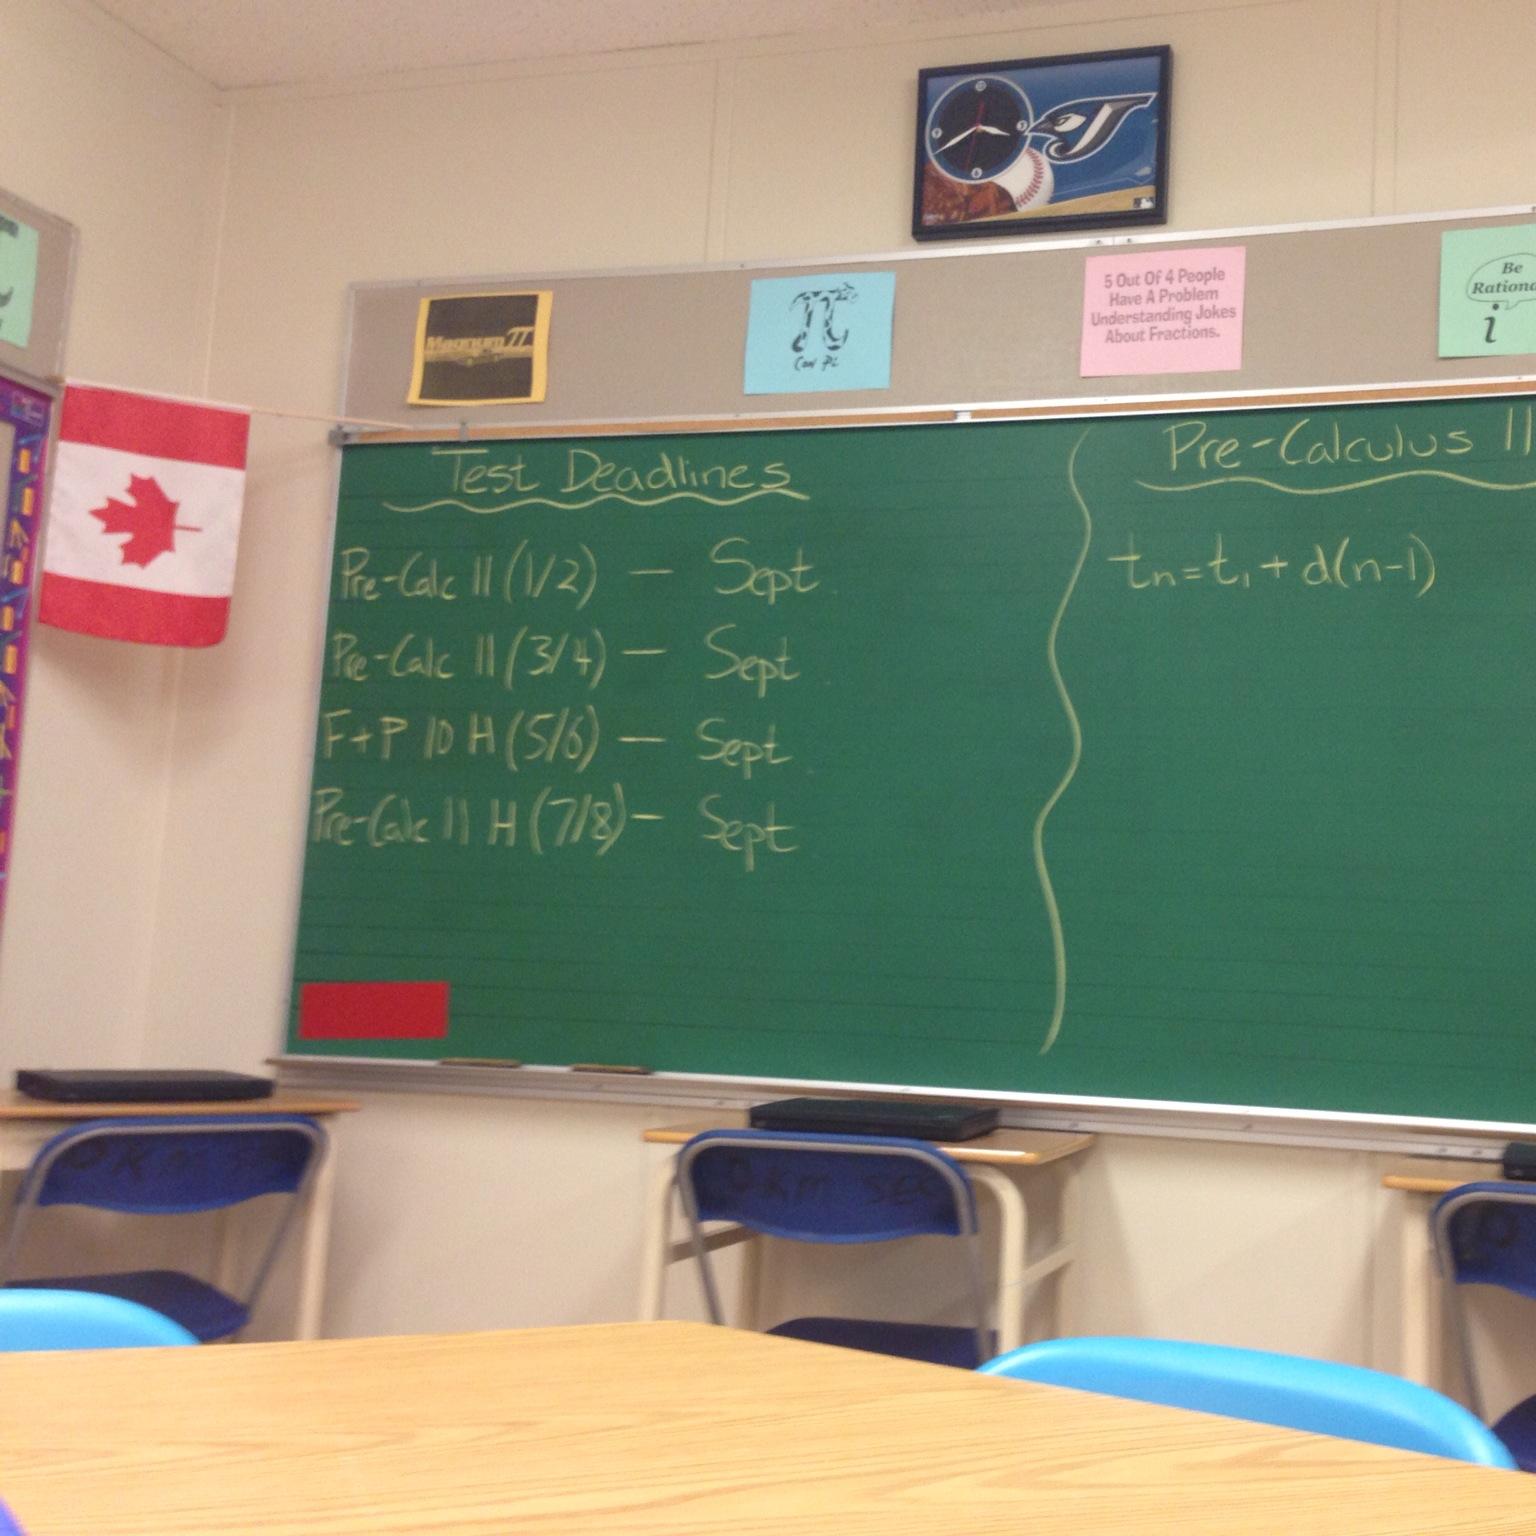 Magnum π
Cow Pi
5 Out Of 4 People
Have A Problem
Understanding Jokes
About Fractions.
Be
i
Test Deadlines
Pre-Calc 11 (1/2) — Sept
Pre-Calc 11 (3/4) — Sept
F+P 10 H (5/6) — Sept
Pre-Calc 11 H (7/8) — Sept
Pre-Calculus 11
tn = t1 + d(n-1)